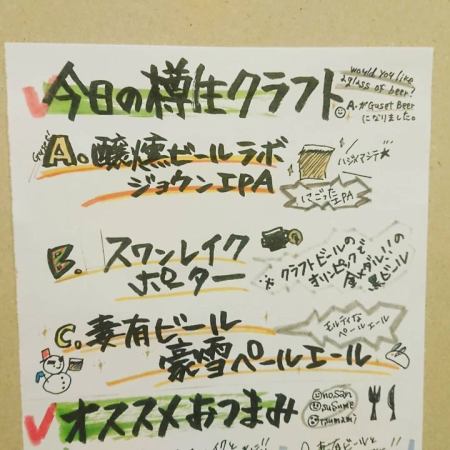 今日の樽生クラフト
would you like
a glass of beer?
A.がGuset Beer
になりました。
Guest!
A.醸燻ビールラボ
ジョウクンIPA
ハジメマシテ
にごったIPA
B.スワンレイク
ポーター
クラフトビールの
オリンピックで
金メダル!!の
黒ビール
C.妻有ビール
豪雪ペールエール
モルティな
ペールエール
オススメおつまみ
nosan
susume
tsumami